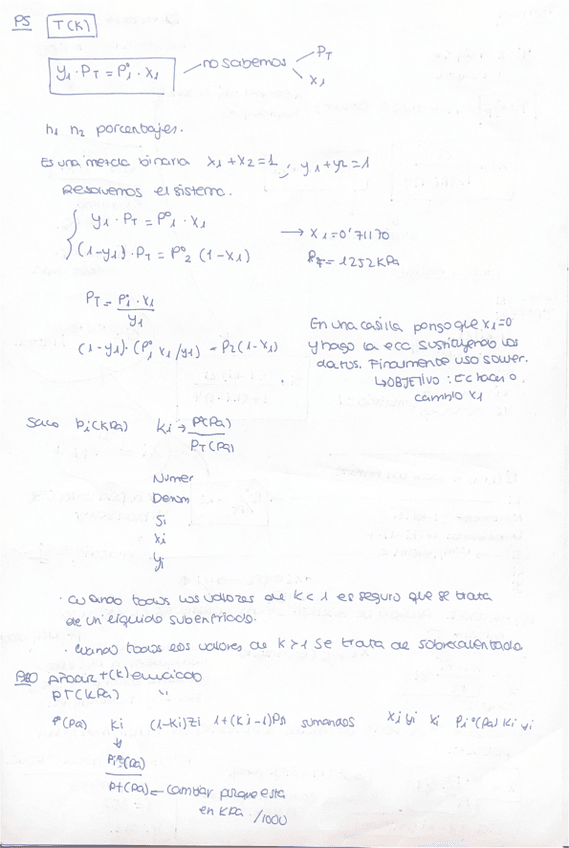 P5 T(K)
y₁ · P_T = P₁° · x₁ no sabemos P_T
x₁
n₁ n₂ porcentajes.
Es una mezcla binaria x₁ + x₂ = 1 ; y₁ + y₂ = 1
Resolvemos el sistema.
y₁ · P_T = P₁° · x₁ → x₁ = 0'71170
(1-y₁) · P_T = P₂° (1-x₁) P_T = 1252 kPa
P_T = P₁° · x₁ / y₁
(1-y₁) · (P₁° x₁/y₁) = P₂(1-x₁)
En una casilla pongo que x₁=0
y hago la ecc sustituyendo los
datos. Finalmente uso solver.
↳ OBJETIVO : Ec hacer 0.
cambio x₁
Saco Pi(kPa) Ki → P°(Pa) / P_T(Pa)
Numer
Denom
Si
xi
yi
· Cuando todos los valores de K<1 es seguro que se trata
de un líquido subenfriado.
· Cuando todos los valores de K>1 se trata de sobrecalentado
P10 Añadir T(K) enunciado
PT(kPa) "
P°(Pa) Ki (1-Ki)zi 1+(Ki-1) sumandos xi yi xi Pi°(Pa) Ki yi
↓
Pi°(Pa)
Pt(Pa) = cambiar porque esta
en kPa /1000